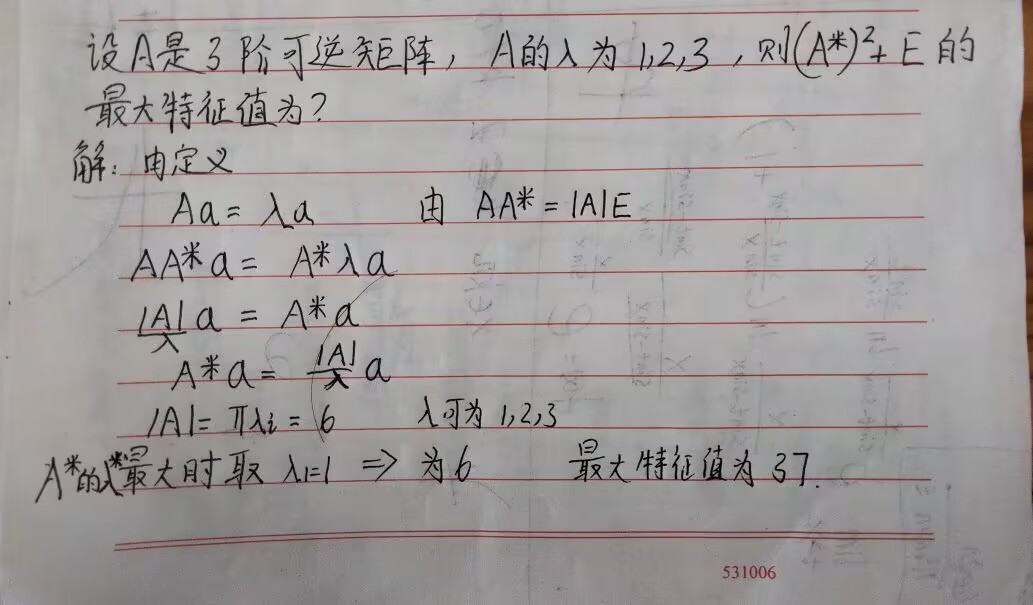 设A是3阶可逆矩阵，A的λ为1,2,3，则(A*)²+E的
最大特征值为？
解：由定义
Aa=λa 由 AA*=|A|E
AA*a= A*λa
|A|/λ a = A*a
A*a= |A|/λ a
|A|=πλi=6 λ可为1,2,3
A*的λ*最大时取 λ1=1 ⇒ 为6 最大特征值为37.
531006